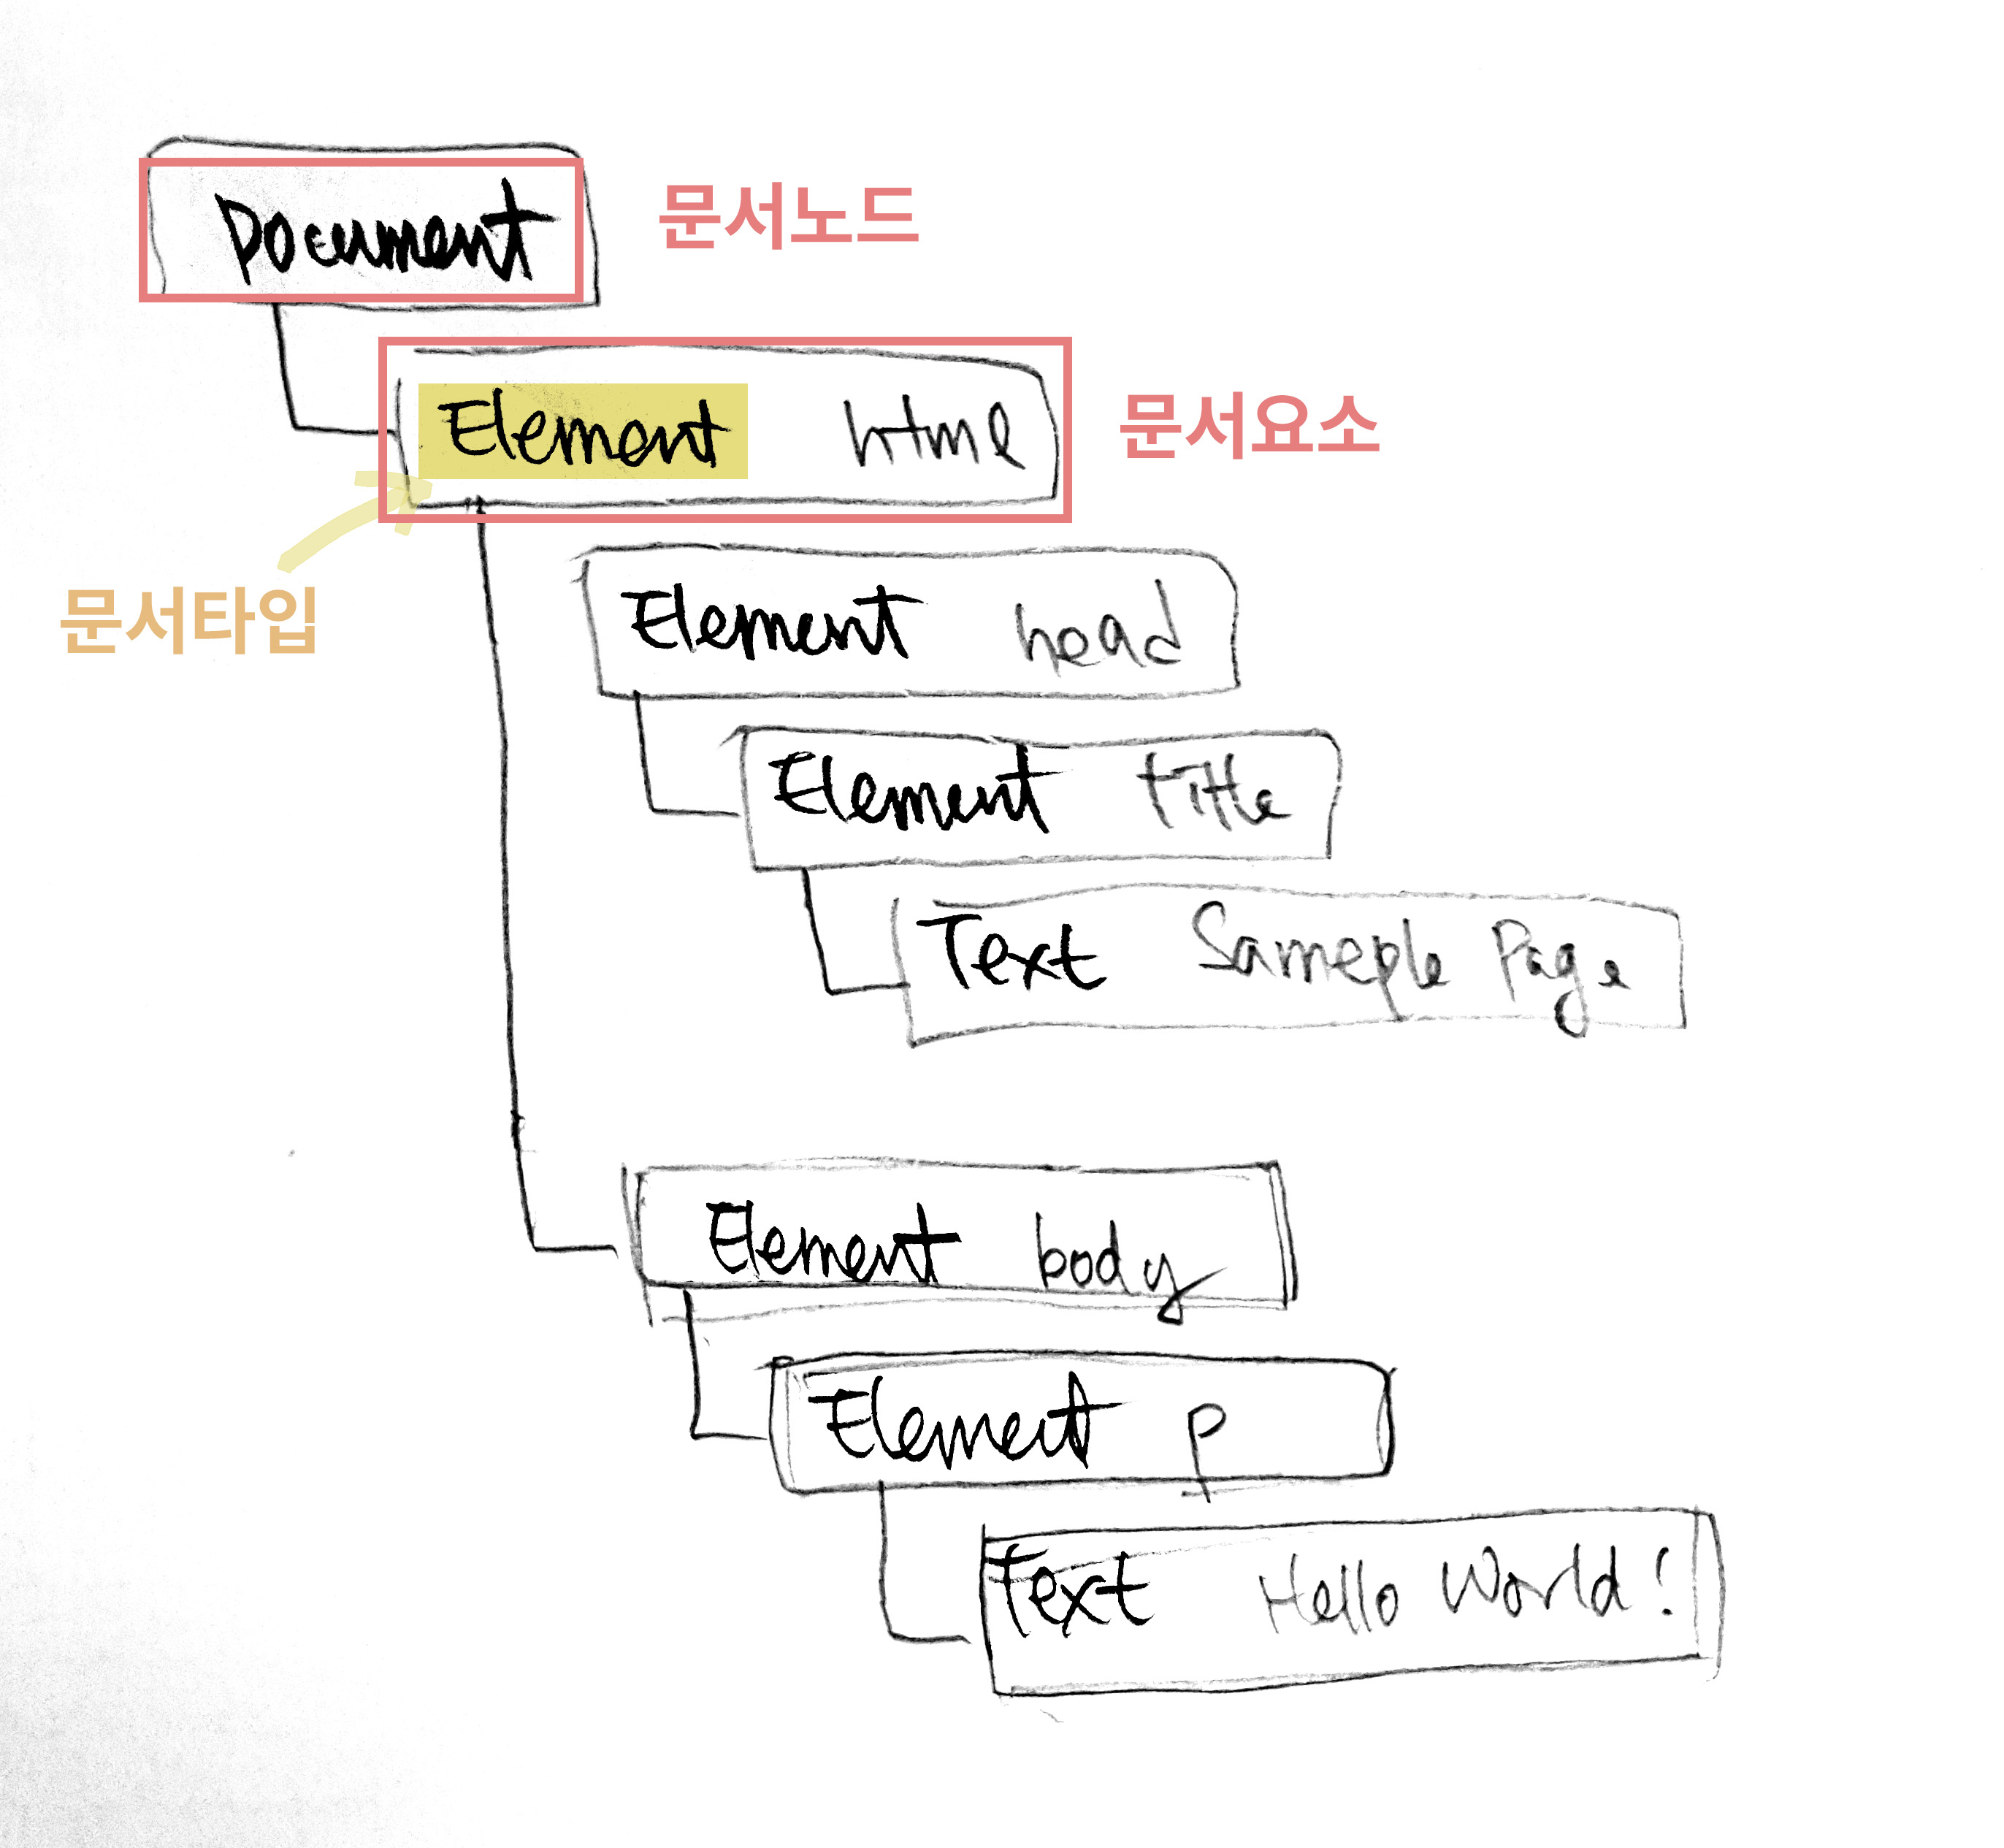 Document 문서노드
Element html 문서요소
문서타입
Element head
Element title
Text Sameple Page
Element body
Element p
Text Hello World!